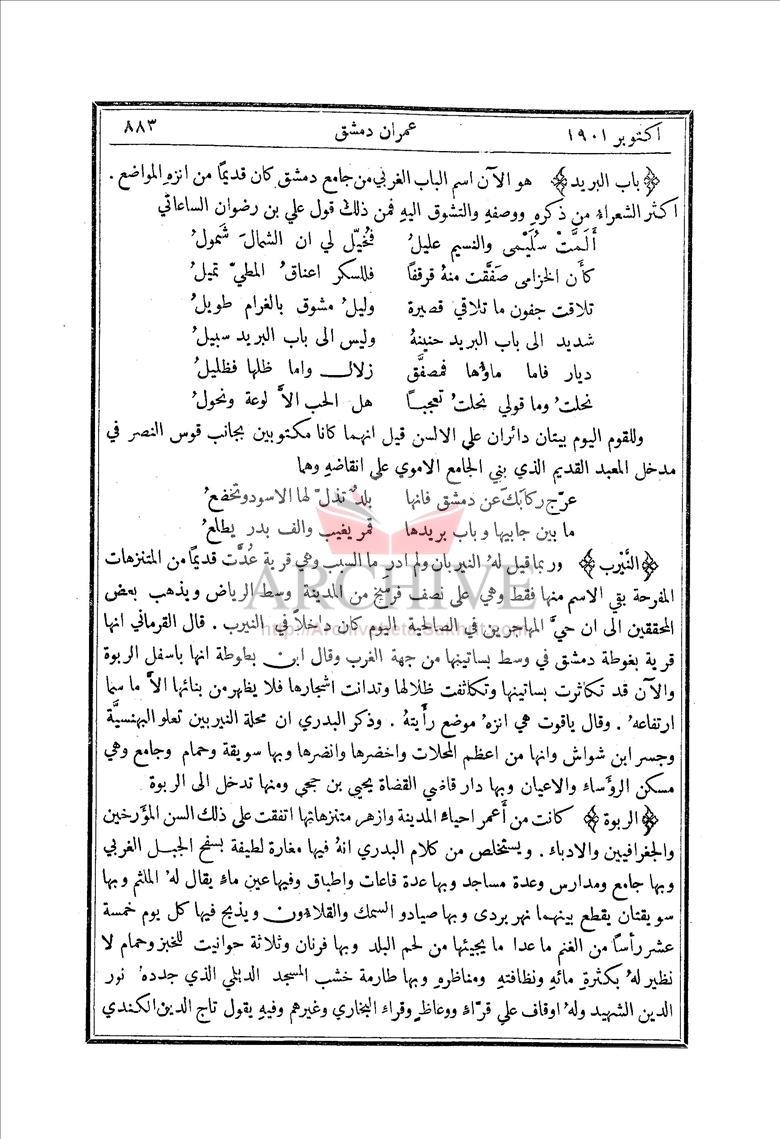 اكتوبر ١٩٠١ عمران دمشق ٨٨٣
﴿باب البريد﴾ هو الآن اسم الباب الغربي من جامع دمشق كان قديمًا من انزهِ المواضع .
اكثر الشعراءُ من ذكرهِ ووصفهِ والتشوق اليهِ فمن ذلك قول علي بن رضوان الساعاتي
أَلَمَّتْ سُلَيْمى والنسيم عليلُ فخُيّل لي ان الشمالَ شَمولُ
كأَن الخزامى صَفَّقت منهُ قرقفًا فللسكر اعناقُ المطيّ تميلُ
تلاقت جفون ما تلاقي قصيرة وليلُ مشوق بالغرام طويلُ
شديد الى باب البريد حنينهُ وليس الى باب البريد سبيلُ
ديار فاما ماؤُها فمصفَّق زلال واما ظلها فظليلُ
نحلتُ وما قولي نحلتُ تعجبًا هل الحب الاَّ لوعة ونحولُ
وللقوم اليوم بيتان دائران على الالسن قيل انهما كانا مكتوبين بجانب قوس النصر في
مدخل المعبد القديم الذي بني الجامع الاموي على انقاضهِ وهما
عرّج ركابَكَ عن دمشق فانها بلدٌ تذلّ لها الاسود وتخضعُ
ما بين جابيها وباب بريدها قمر يغيب والف بدر يطلعُ
﴿النَّيرب﴾ وربما قيل لهُ النيربان ولم ادر ما السبب وهي قرية عُدَّت قديمًا من المتنزهات
المفرحة بقي الاسم منها فقط وهي على نصف فرسخ من المدينة وسط الرياض ويذهب بعض
المحققين الى ان حيَّ المهاجرين في الصالحية اليوم كان داخلاً في النيرب . قال القرماني انها
قرية بغوطة دمشق في وسط بساتينها من جهة الغرب وقال ابن بطوطة انها باسفل الربوة
والآن قد تكاثرت بساتينها وتكاثفت ظلالها وتدانت اشجارها فلا يظهر من بنائها الاَّ ما سما
ارتفاعهُ . وقال ياقوت هي انزهُ موضع رأَيتهُ . وذكر البدري ان محلة النيربين تعلو البهنسيَّة
وجسر ابن شواش وانها من اعظم المحلات واخضرها وانضرها وبها سويقة وحمام وجامع وهي
مسكن الروَّساء والاعيان وبها دار قاضي القضاة يحيى بن حجي ومنها تدخل الى الربوة
﴿الربوة﴾ كانت من أَعمر احياءِ المدينة وازهر متنزهاتها اتفقت على ذلك السن الموَّرخين
والجغرافيين والادباء . ويستخلص من كلام البدري انهُ فيها مغارة لطيفة بسفح الجبل الغربي
وبها جامع ومدارس وعدة مساجد وبها عدة قاعات واطباق وفيها عين ماءٍ يقال لهُ الملثم وبها
سويقتان يقطع بينهما نهر بردى وبها صيادو السمك والقلاءون ويذبح فيها كل يوم خمسة
عشر رأسًا من الغنم ما عدا ما يجيئها من لحم البلد وبها فرنان وثلاثة حوانيت للخبز وحمام لا
نظير لهُ بكثرةِ مائهِ ونظافتهِ ومناظرهِ وبها طارمة خشب المسجد الديلي الذي جددهُ نور
الدين الشهيد ولهُ اوقاف على قرّاءٍ ووعاظ وقراء البخاري وغيرهم وفيهِ يقول تاج الدين الكندي
ARCHIVE